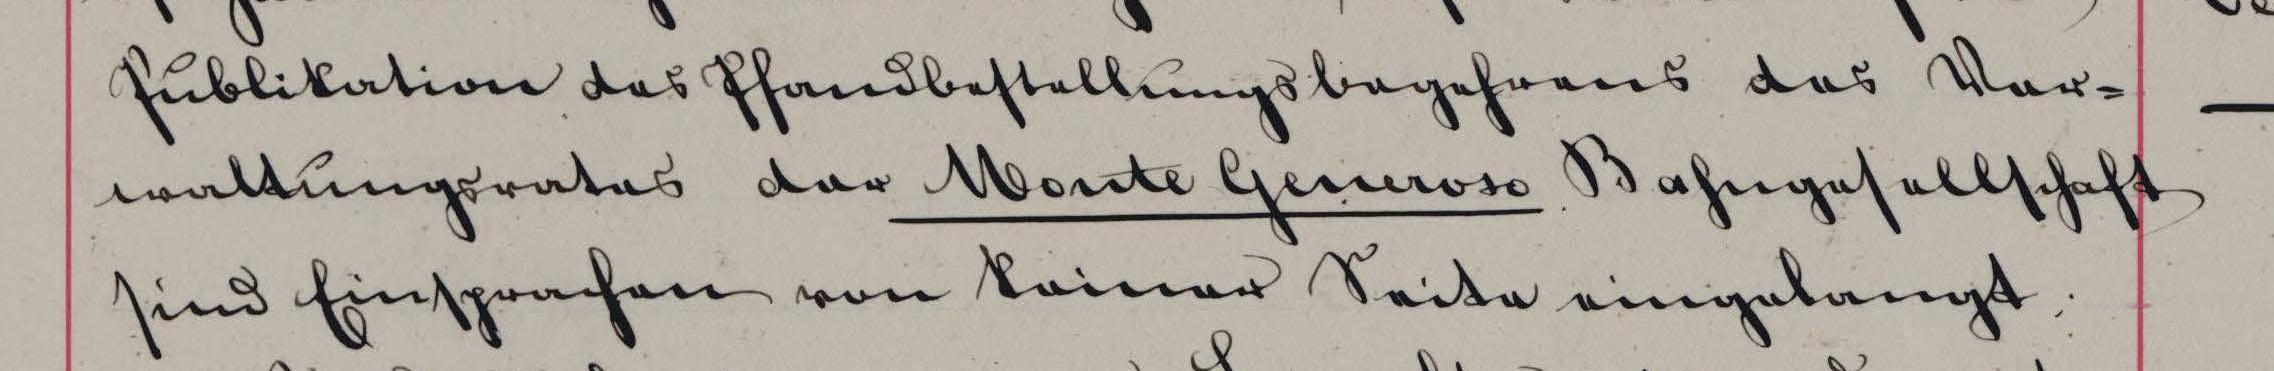 Publikation des Pfandbestellungsbegehrens des Ver=
waltungsrates der Monte Generoso Bahngesellschaft
sind Einsprachen von keiner Seite eingelangt.